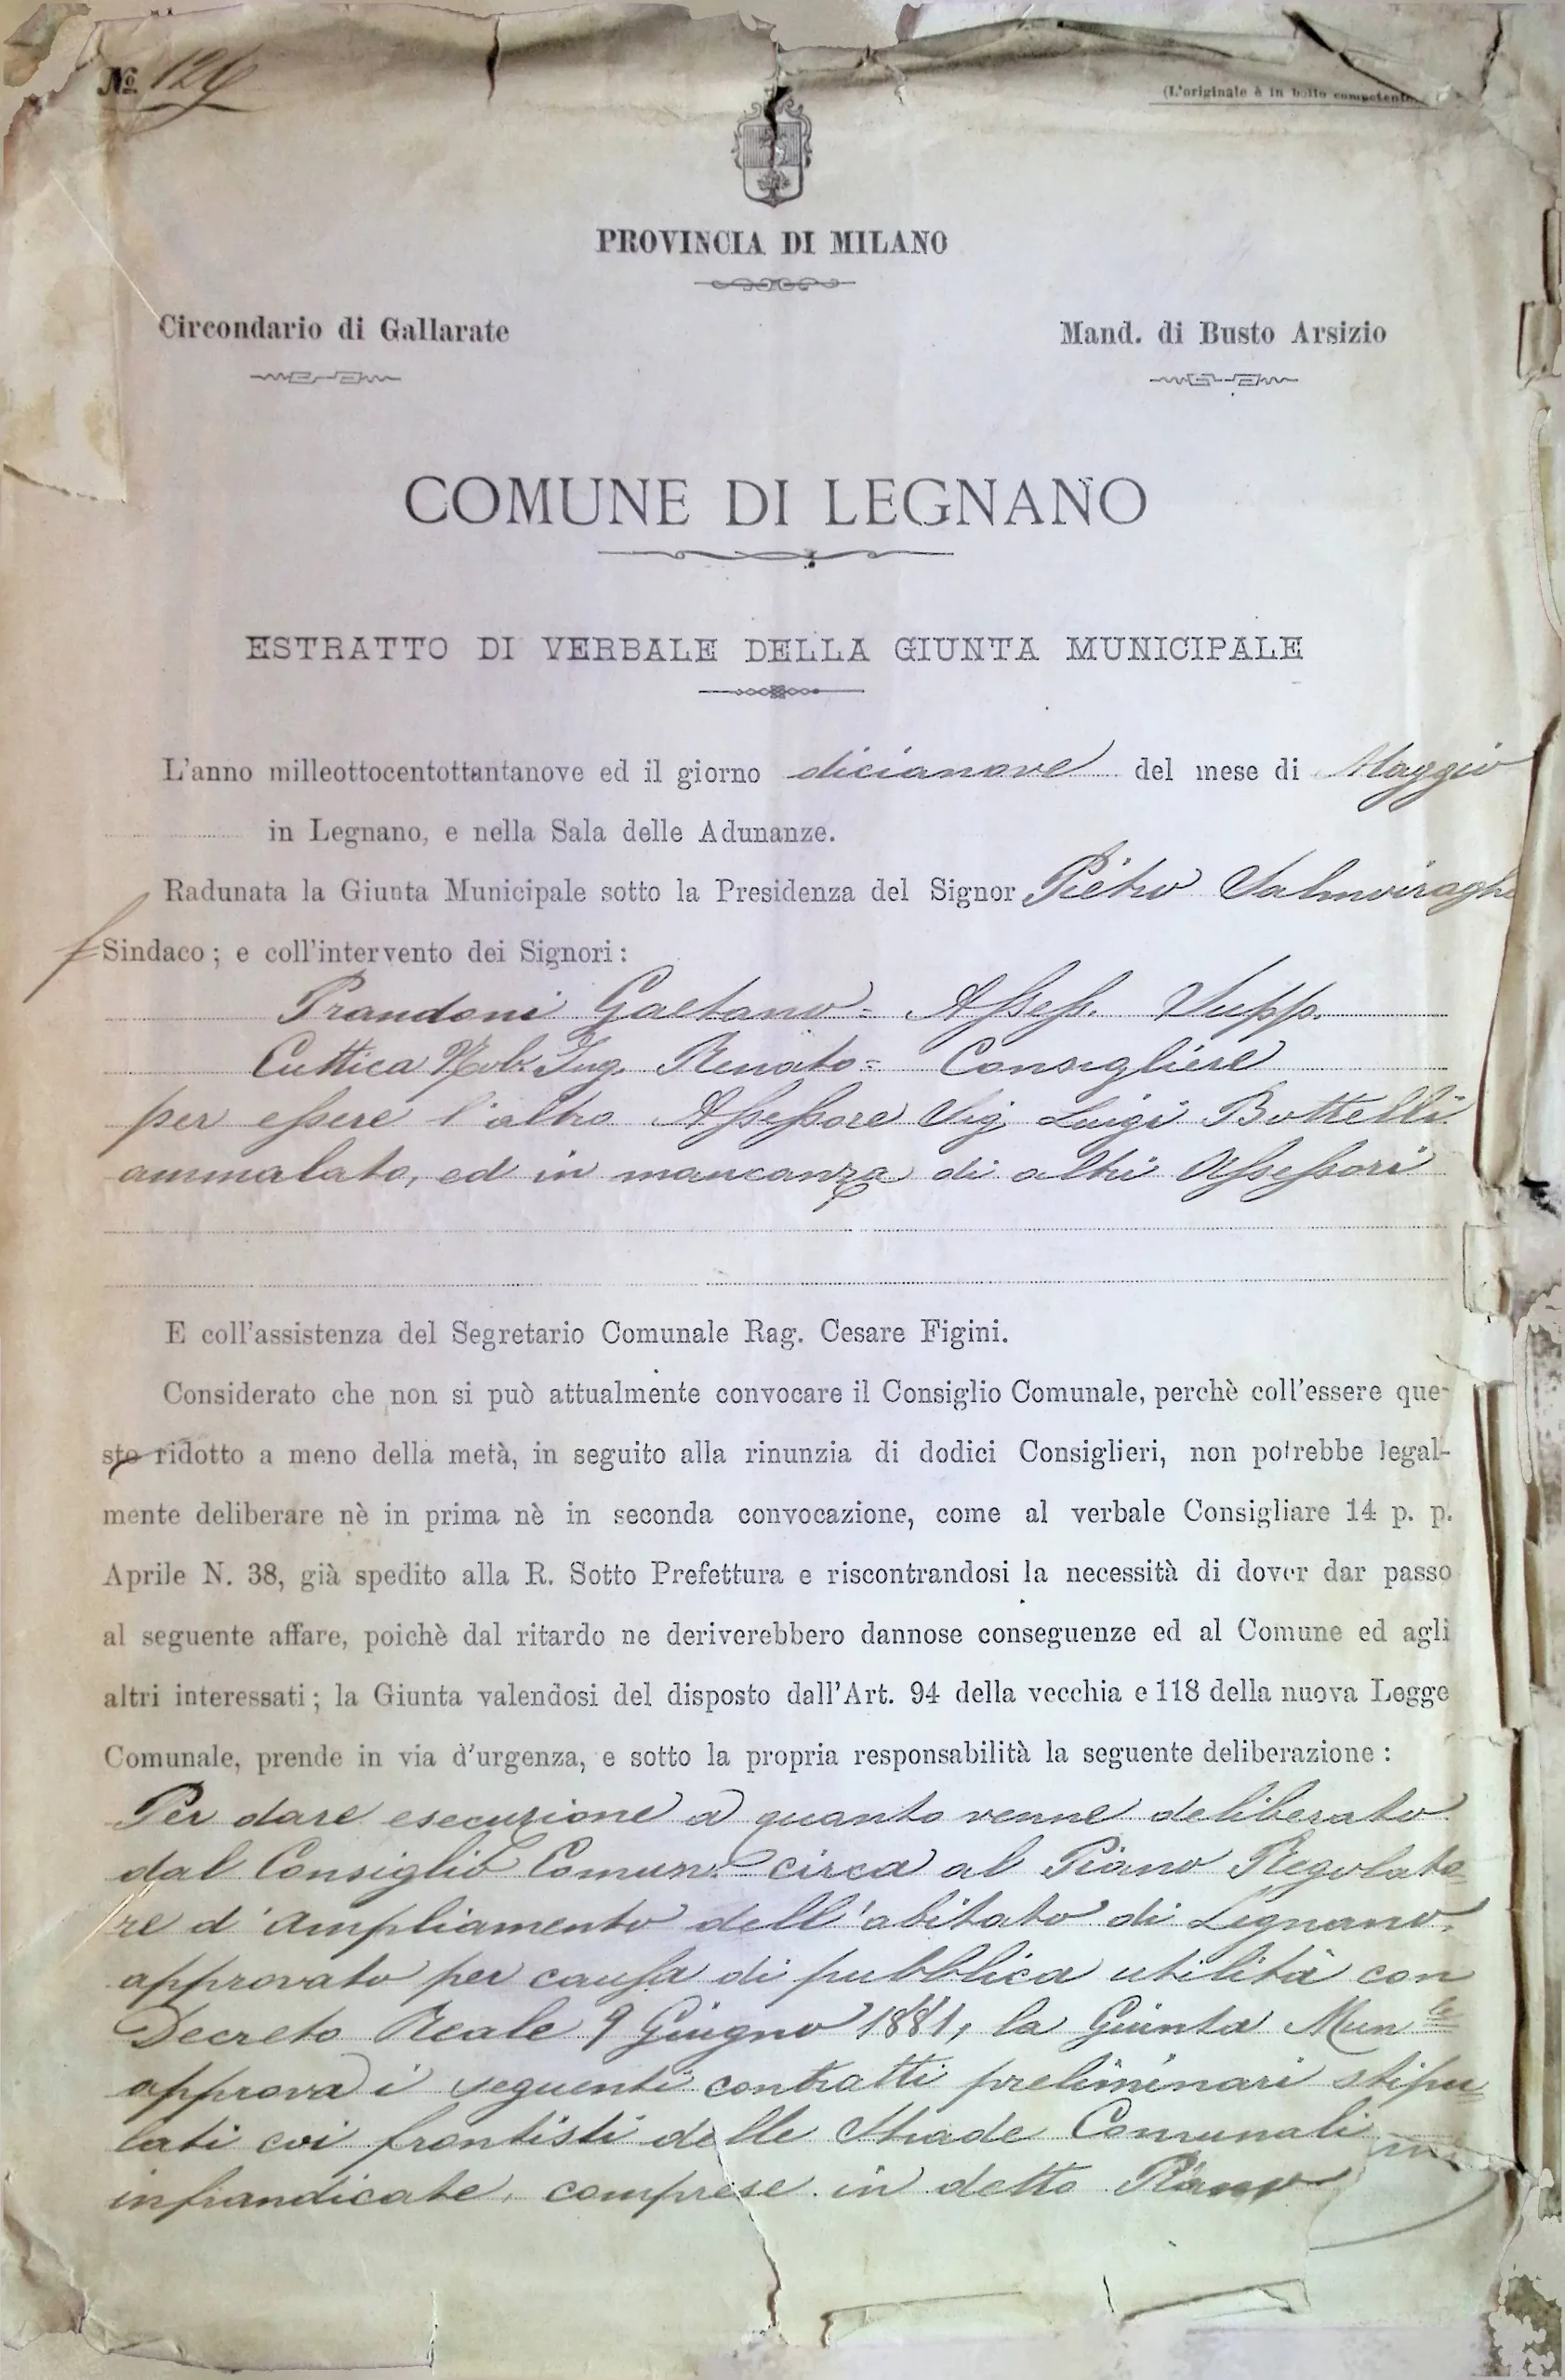 No. 126
(L'originale è in bollo competente
PROVINCIA DI MILANO
Circondario di Gallarate
Mand. di Busto Arsizio
COMUNE DI LEGNANO
ESTRATTO DI VERBALE DELLA GIUNTA MUNICIPALE
L'anno milleottocentottantanove ed il giorno dicianove del mese di Maggio
in Legnano, e nella Sala delle Adunanze.
Radunata la Giunta Municipale sotto la Presidenza del Signor Pietro Salmoiraghi
f Sindaco; e coll'intervento dei Signori:
Prandoni Gaetano = Assess. Supp.
Cuttica Nob. Ing. Renato = Consigliere
per essere l'altro Assessore Sig. Luigi Bottelli
ammalato, ed in mancanza di altri Assessori
E coll'assistenza del Segretario Comunale Rag. Cesare Figini.
Considerato che non si può attualmente convocare il Consiglio Comunale, perchè coll'essere que-
sto ridotto a meno della metà, in seguito alla rinunzia di dodici Consiglieri, non potrebbe legal-
mente deliberare nè in prima nè in seconda convocazione, come al verbale Consigliare 14 p. p.
Aprile N. 38, già spedito alla R. Sotto Prefettura e riscontrandosi la necessità di dover dar passo
al seguente affare, poichè dal ritardo ne deriverebbero dannose conseguenze ed al Comune ed agli
altri interessati; la Giunta valendosi del disposto dall'Art. 94 della vecchia e 118 della nuova Legge
Comunale, prende in via d'urgenza, e sotto la propria responsabilità la seguente deliberazione:
Per dare esecuzione a quanto venne deliberato
dal Consiglio Comun. circa al Piano Regolato=
re d'ampliamento dell'abitato di Legnano,
approvato per causa di pubblica utilità con
Decreto Reale 9 Giugno 1881, la Giunta Mun.le
approva i seguenti contratti preliminari stipu=
lati coi frontisti delle Strade Comunali
infraindicate, comprese in detto Piano